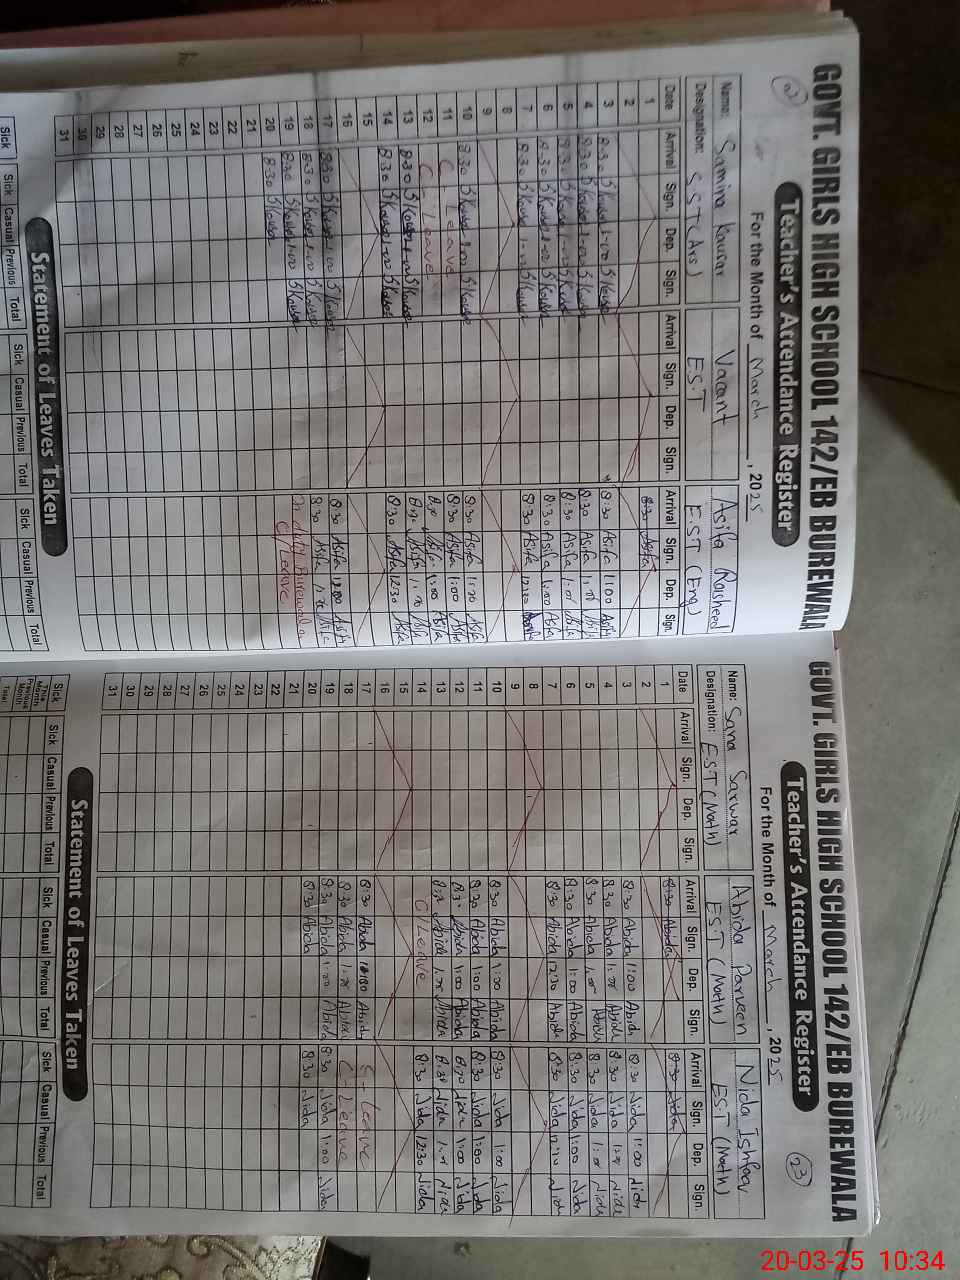 GOVT. GIRLS HIGH SCHOOL 142/EB BUREWALA
Teacher's Attendance Register
For the Month of March, 2025
Name: Samina Kousar Vacant Asifa Rasheed
Designation: EST EST (Eng)
Date Arrival Sign. Dep. Sign. Arrival Sign. Dep. Sign. Arrival Sign. Dep. Sign.
1 8:30 Asifa
2
3 8:30 S/Kousar 1:00 S/Kousar 8:30 Asifa 1:00 Asifa
4 8:30 S/Kousar 1:00 S/Kousar 8:30 Asifa Asifa
5 8:30 S/Kousar 1:00 S/Kousar 8:30 Asifa Asifa
6 8:30 S/Kousar 1:00 S/Kousar 8:30 Asifa 1:00 Asifa
7 8:30 S/Kousar S/Kousar 8:30 Asifa 12:30
8
9
10 8:30 S/Kousar 1:00 S/Kousar 8:30 Asifa Asifa
11 C Leave 8:30 Asifa 1:00 Asifa
12 C - Leave Asifa 1:00 Asifa
13 8:30 S/Kousar 1:00 S/Kousar 8:30 Asifa Asifa
14 8:30 S/Kousar S/Kousar 8:30 Asifa 12:30 Asifa
15
16
17 8:30 S/Kousar 1:00 S/Kousar 8:30 Asifa Asifa
18 8:30 S/Kousar 1:00 S/Kousar 8:30 Asifa Asifa
19 8:30 S/Kousar 1:00 S/Kousar Burewala
20 8:30 S/Kousar C/Leave
21
22
23
24
25
26
27
28
29
30
31
Statement of Leaves Taken
Sick Casual Previous Total Sick Casual Previous Total Sick Casual Previous Total
GOVT. GIRLS HIGH SCHOOL 142/EB BUREWALA
23
Teacher's Attendance Register
For the Month of March, 2025
Name: Sana Sarwar Abida Parveen Nida Ishfaq
Designation: EST (Math) EST (Math) EST (Math)
Date Arrival Sign. Dep. Sign. Arrival Sign. Dep. Sign. Arrival Sign. Dep. Sign.
1 8:30 Abida 8:30 Nida
2
3 8:30 Abida 1:00 Abida 8:30 Nida 1:00 Nida
4 8:30 Abida Abida 8:30 Nida Nida
5 8:30 Abida Abida 8:30 Nida Nida
6 8:30 Abida 1:00 Abida 8:30 Nida 1:00 Nida
7 8:30 Abida 12:30 Abida 8:30 Nida Nida
8
9
10 8:30 Abida 1:00 Abida 8:30 Nida 1:00 Nida
11 8:30 Abida 1:00 Abida 8:30 Nida 1:00 Nida
12 8:30 Abida 1:00 Abida 8:30 Nida 1:00 Nida
13 Abida Abida 8:30 Nida Nida
14 C/Leave 8:30 Nida 12:30 Nida
15
16
17 8:30 Abida Abida Leave
18 8:30 Abida Abida C - Leave
19 8:30 Abida 1:00 Abida 8:30 Nida 1:00 Nida
20 8:30 Abida 8:30 Nida
21
22
23
24
25
26
27
28
29
30
31
Statement of Leaves Taken
Sick Sick Casual Previous Total Sick Casual Previous Total Sick Casual Previous Total
This Month
Previous Month
Total
20-03-25 10:34